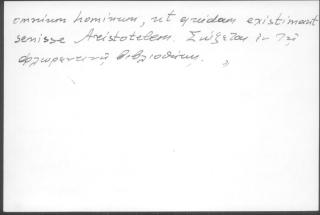 omnium hominum, ut quidam existimant
senisse Aristotelem. Σώζεται ἐν τῇ
φλωρεντινῇ βιβλιοθήκῃ. »